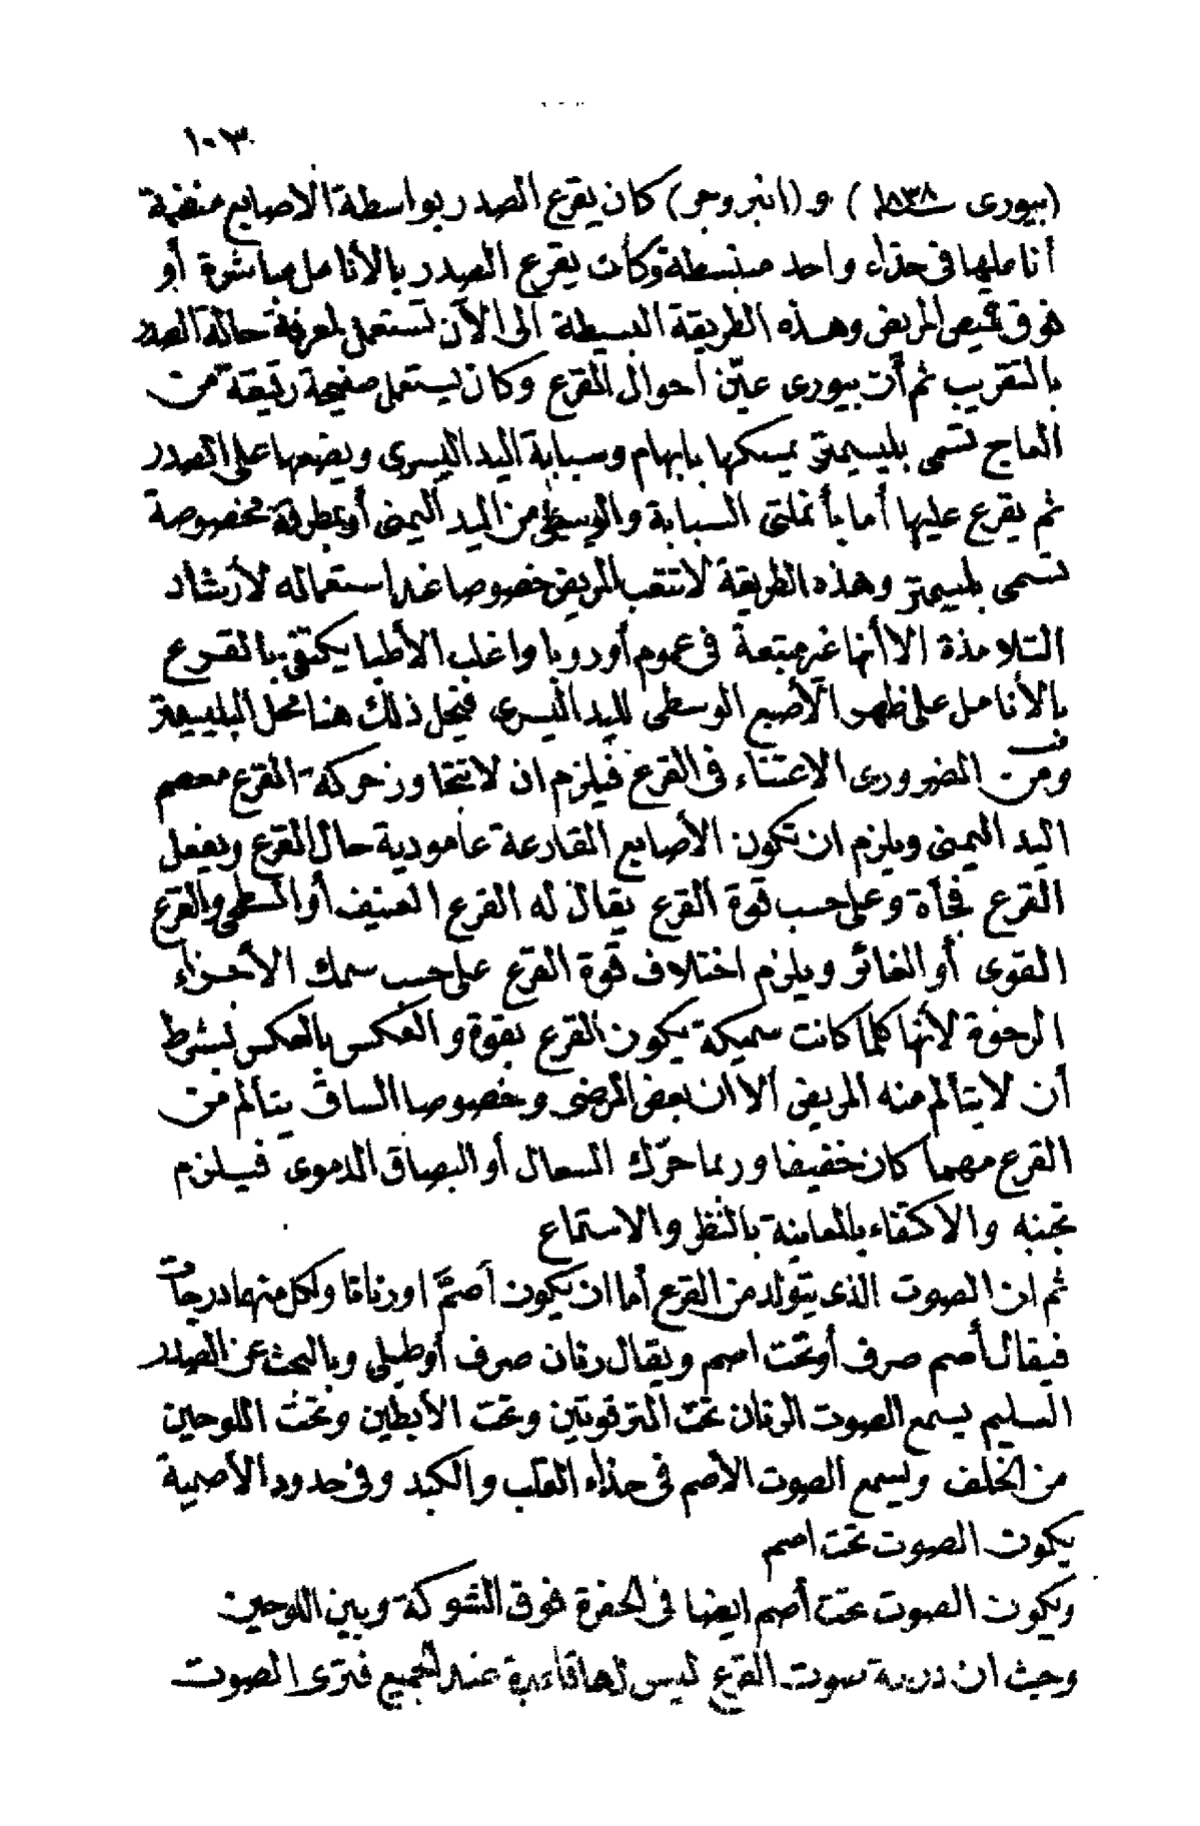 ١٠٣
(بيورى سـ١٨٣٨ـنة) و (انبروجر) كان يقرع الصدر بواسطة الاصابع منضمة
أناملها فى حذاء واحد منبسطة وكان يقرع الصدر بالأنامل مباشرة أو
فوق قميص المريض وهذه الطريقة البسيطة الى الآن تستعمل لمعرفة حالة الصدر
بالتقريب ثم أن بيورى عيّن أحوال القرع وكان يستعمل صفيحة رقيقة من
العاج تسمى بليسيمتر يمسكها بابهام وسبابة اليد اليسرى ويضعها على الصدر
ثم يقرع عليها أما بأنملتى السبابة والوسطى من اليد اليمنى أو بمطرقة مخصوصة
تسمى بليسيمتر وهذه الطريقة لاتتعب المريض خصوصا عند استعماله لأرشاد
التلامذة الا أنها غير متبعة فى عموم أوروبا واغلب الأطبا يكتفى بالقرع
بالأنامل على ظهر الأصبع الوسطى لليد اليسرى فيحل ذلك هنا محل البليسيمتر
ومن الضرورى الاعتناء فى القرع فيلزم ان لاتتجاوز حركة القرع معصم
اليد اليمنى ويلزم ان تكون الأصابع القارعة عامودية حال القرع ويفعل
القرع فجأة وعلى حسب قوة القرع يقال له القرع العنيف أو السطحى والقرع
القوى أو الغائر ويلزم اختلاف قوة القرع على حسب سمك الأجزاء
الرخوة لأنها كلما كانت سميكة يكون القرع بقوة والعكس بالعكس بشرط
أن لايتألم منه المريض الا ان بعض المرضى وخصوصا الساق يتألم من
القرع مهما كان خفيفا وربما حرّك السعال أو البصاق الدموى فيلزم
تجنبه والاكتفاء بالمعاينة بالنظر والاستماع
ثم ان الصوت الذى يتولد من القرع أما ان يكون أصمَّ او رنانا ولكل منها درجات
فيقال أصم صرف أو تحت اصم ويقال رنان صرف أو طبلى وبالبحث عن الصدر
السليم يسمع الصوت الرنان تحت الترقوتين وتحت الأبطين وتحت اللوحين
من الخلف ويسمع الصوت الأصم فى حذاء القلب والكبد وفى حدود الأصمية
يكون الصوت تحت اصم
ويكون الصوت تحت أصم ايضا فى الحفرة فوق الشوكة وبين اللوحين
وحيث ان درجة صوت القرع ليس لها قاعدة عند الجميع فترى الصوت